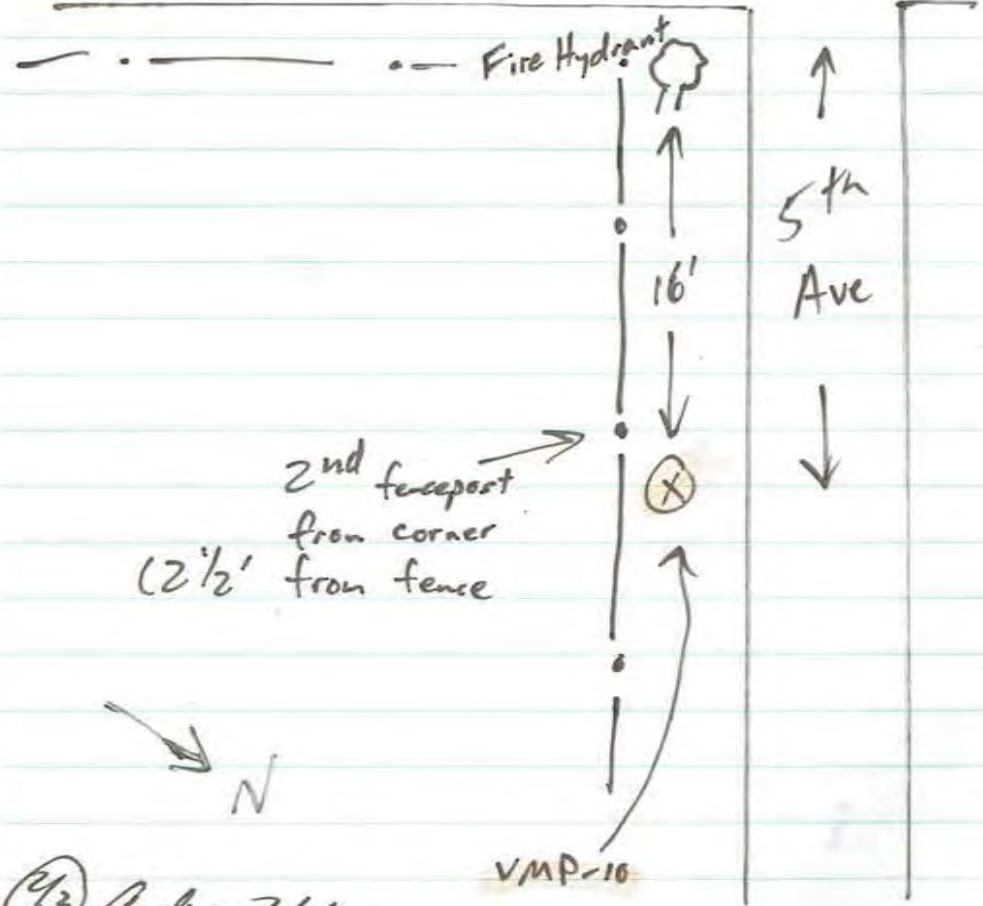 Fire Hydrant
5th
Ave
16'
2nd fencepost
from corner
(2 1/2' from fence
X
N
VMP-10
2/2